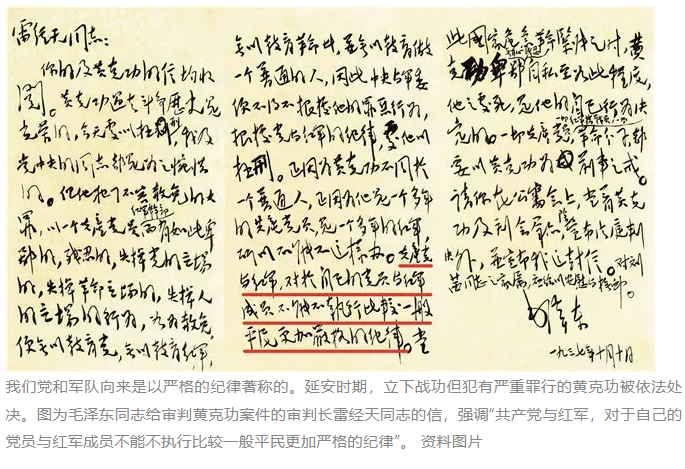 雷经天同志：
你的及黄克功的信均收
阅。黄克功过去斗争历史是
光荣的，今天处以极刑，我及
党中央的同志都是为之惋惜
的。但他犯了不容赦免的大
罪，以一个共产党员红军干部而有如此卑
鄙的，残忍的，失掉党的立场
的，失掉革命立场的，失掉人
的立场的行为，如为赦免，
便无以教育党，无以教育红军，
无以教育革命者，并无以教育做
一个普通的人，因此中央与军委
便不得不根据他的罪恶行为，
根据党与红军的纪律，处他以
极刑。正因为黄克功不同于
一个普通人，正因为他是一个多年
的共产党员，是一个多年的红军，
所以不能不这样办。共产党
与红军，对于自己的党员与红军
成员不能不执行比较一般
平民更加严格的纪律。当
此国家危急革命紧张之时，黄
克功卑鄙无耻残忍自私至如此程度，
他之处死，是他的自己行为决
定的。一切共产党员，一切红军指战员，一切革命分子，都
要以黄克功为前车之戒。
请你在公审会上，当着黄克
功及到会群众，除宣布法庭判
决外，并宣布我这封信。对刘
茜同志之家属，应给以安慰与抚恤。
毛泽东
一九三七年十月十日
我们党和军队向来是以严格的纪律著称的。延安时期，立下战功但犯有严重罪行的黄克功被依法处
决。图为毛泽东同志给审判黄克功案件的审判长雷经天同志的信，强调“共产党与红军，对于自己的
党员与红军成员不能不执行比较一般平民更加严格的纪律”。 资料图片